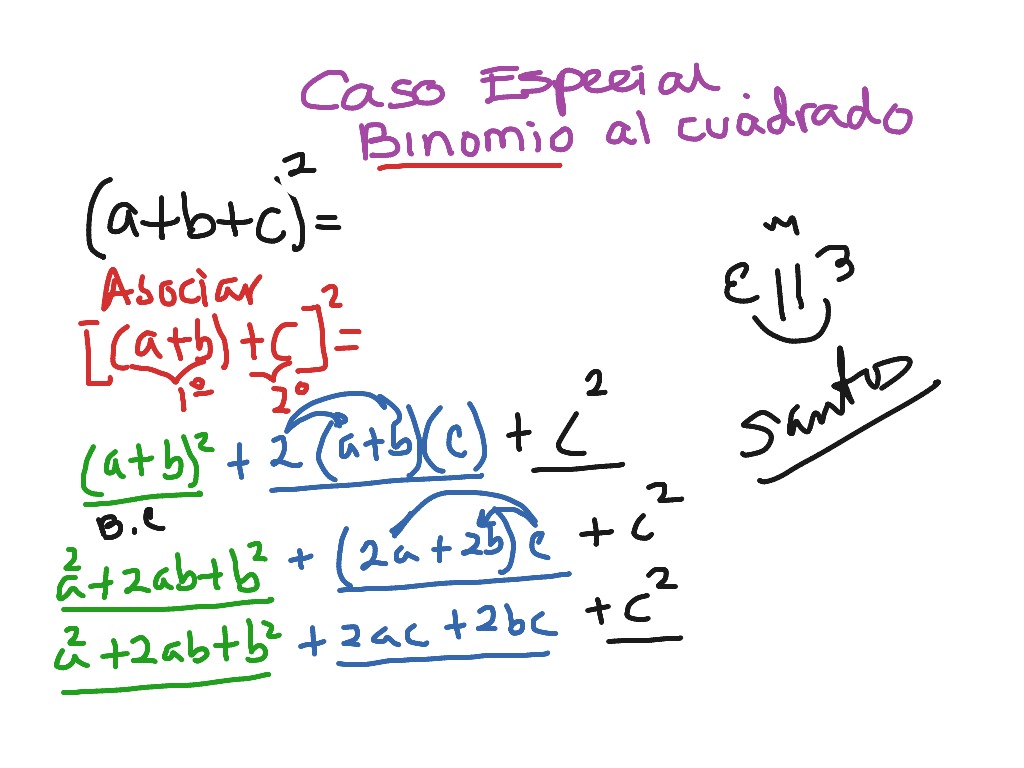 Caso Especial
Binomio al cuadrado
(a+b+c)²=
Asociar
[(a+b)+c]²=
1° 2°
(a+b)² + 2(a+b)(c) + c²
B.C
a²+2ab+b² + (2a+2b)c + c²
a²+2ab+b² + 2ac+2bc + c²
santos